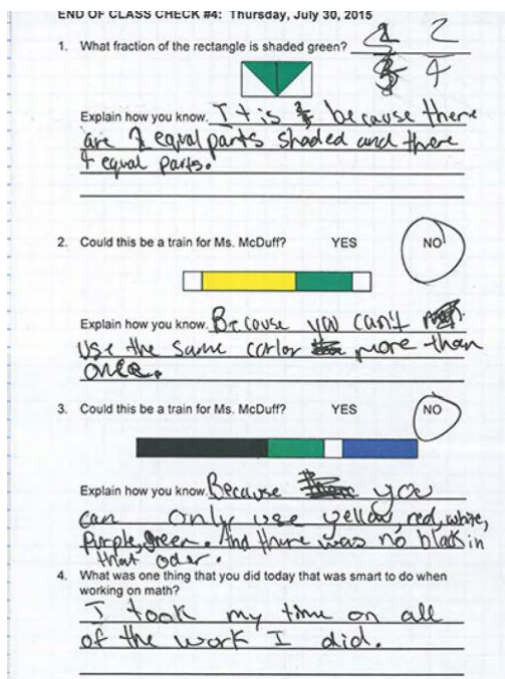 END OF CLASS CHECK #4: Thursday, July 30, 2015
1. What fraction of the rectangle is shaded green? 2/4
Explain how you know. It is because there
are 2 equal parts shaded and there
4 equal parts.
2. Could this be a train for Ms. McDuff? YES NO
Explain how you know. Because you can't
use the same corlor more than
once.
3. Could this be a train for Ms. McDuff? YES NO
Explain how you know. Because you
can only use yellow, red, white,
Purple, green. And there was no black in
that oder.
4. What was one thing that you did today that was smart to do when
working on math?
I took my time on all
of the work I did.